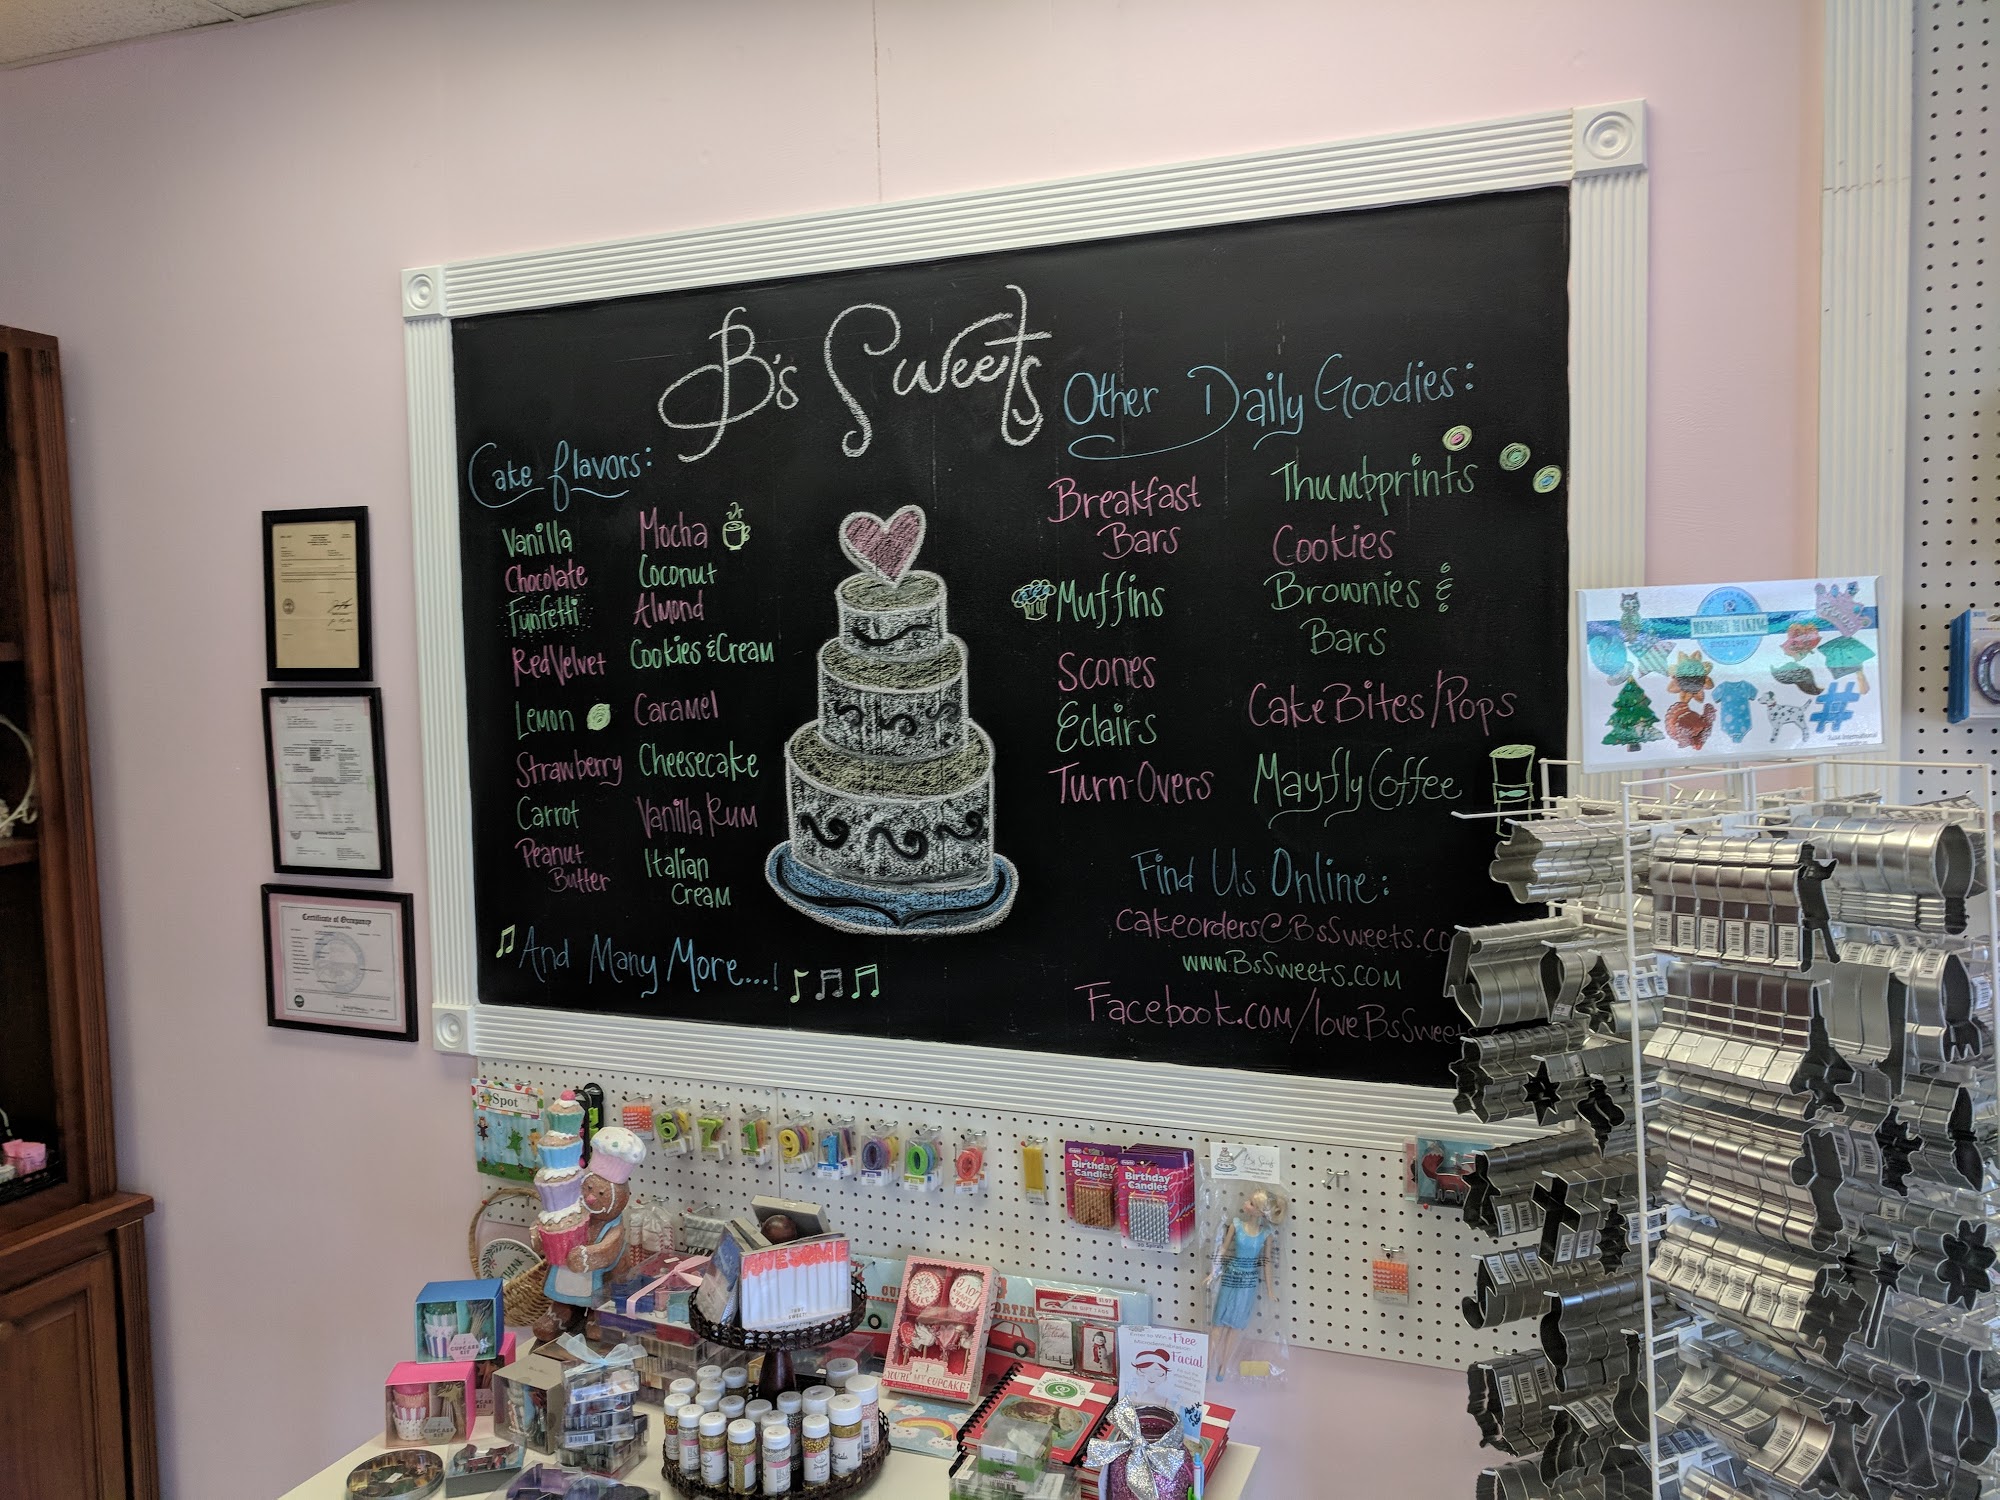 B's Sweets
Cake flavors:
Vanilla
Chocolate
Funfetti
Red Velvet
Lemon
Strawberry
Carrot
Peanut
Butter
Mocha
Coconut
Almond
Cookies & Cream
Caramel
Cheesecake
Vanilla Rum
Italian
Cream
And Many More....!
Other Daily Goodies:
Breakfast
Bars
Muffins
Scones
Eclairs
Turn-Overs
Thumbprints
Cookies
Brownies &
Bars
Cake Bites/Pops
Mayfly Coffee
Find Us Online:
cakeorders@BsSweets.co
www.BsSweets.com
Facebook.com/loveBsSweets
Certificate of Occupancy
MEMORY MAKING
#
Spot
6 7 1 9 1 0 0 0
Birthday
Candles
Birthday
Candles
AWESOME
CUPCAKE KIT
CUPCAKE KIT
YOU'RE MY CUPCAKE
Enter to Win a Free
Facial